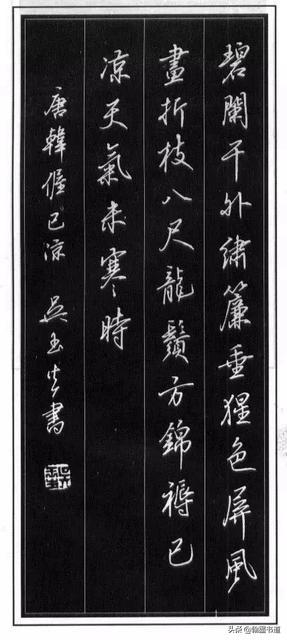 碧闌干外繡簾垂猩色屏風
畫折枝八尺龍鬚方錦褥已
涼天氣未寒時
唐韓偓已涼 吳玉生書
头条@翰墨书道